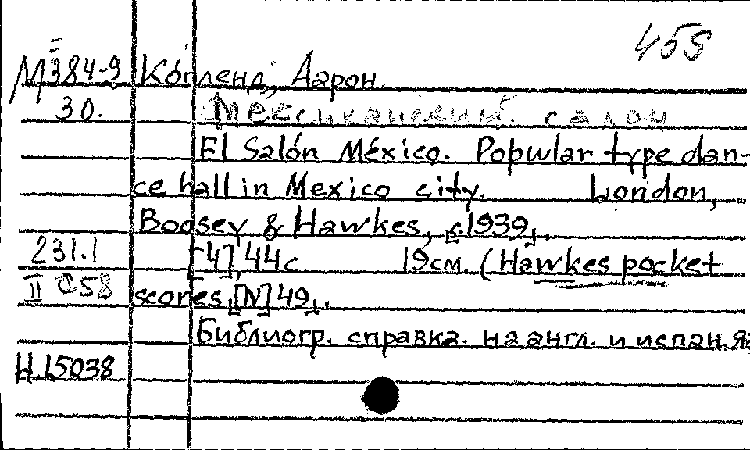 459
М384-9 Копленд, Аарон.
30. Мексиканский салон
El Salón México. Popular type dan-
ce hall in Mexico city. London,
Boosey & Hawkes, [c.1939].
231.1 [4], 44с 19см. (Hawkes pocket
II С58 scores, [N] 49).
Библиогр. справка. на англ. и испан. яз
Н.15038